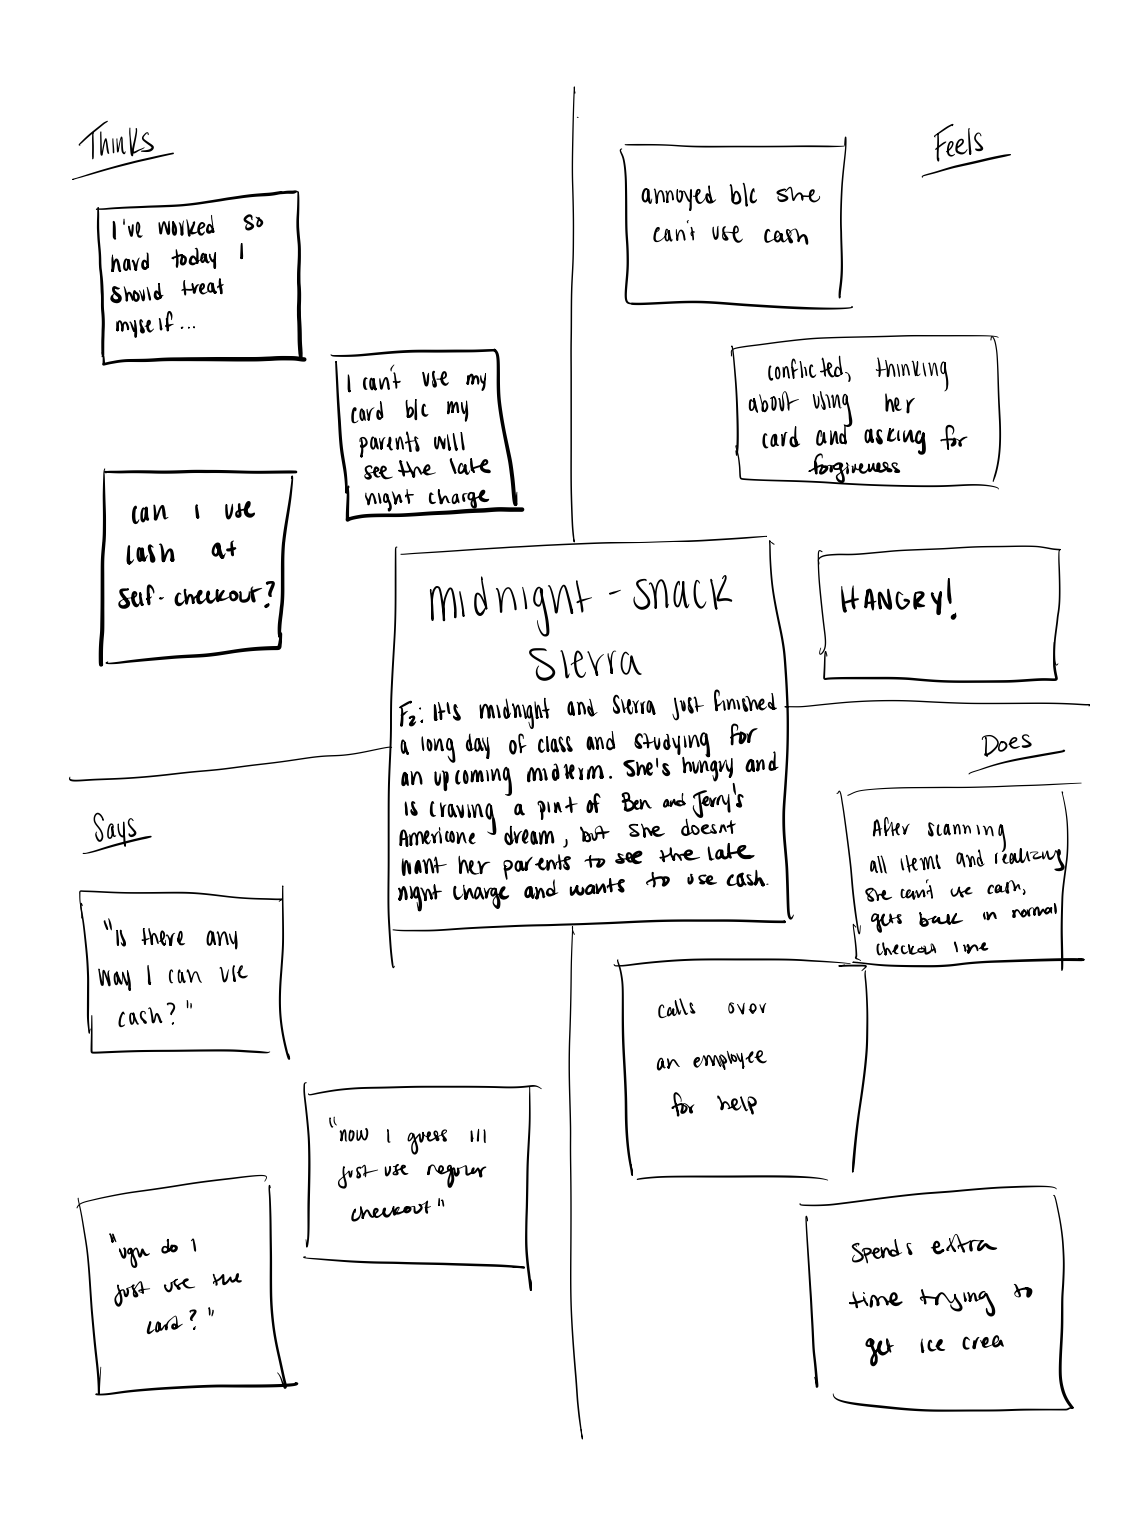 Thinks
I've worked so
hard today I
should treat
myself...
I can't use my
card b/c my
parents will
see the late
night charge
can I use
cash at
self-checkout?
Feels
annoyed b/c she
can't use cash
conflicted, thinking
about using her
card and asking for
forgiveness
HANGRY!
midnight-snack
Sierra
F2: It's midnight and Sierra just finished
a long day of class and studying for
an upcoming midterm. She's hungry and
is craving a pint of Ben and Jerry's
Americone dream, but she doesnt
want her parents to see the late
night charge and wants to use cash.
Says
"Is there any
way I can use
cash?"
"now I guess I'll
just use regular
checkout"
"ugh do I
just use the
card?"
Does
After scanning
all items and realizing
she can't use cash,
gets back in normal
checkout line
calls over
an employee
for help
Spends extra
time trying to
get ice crea